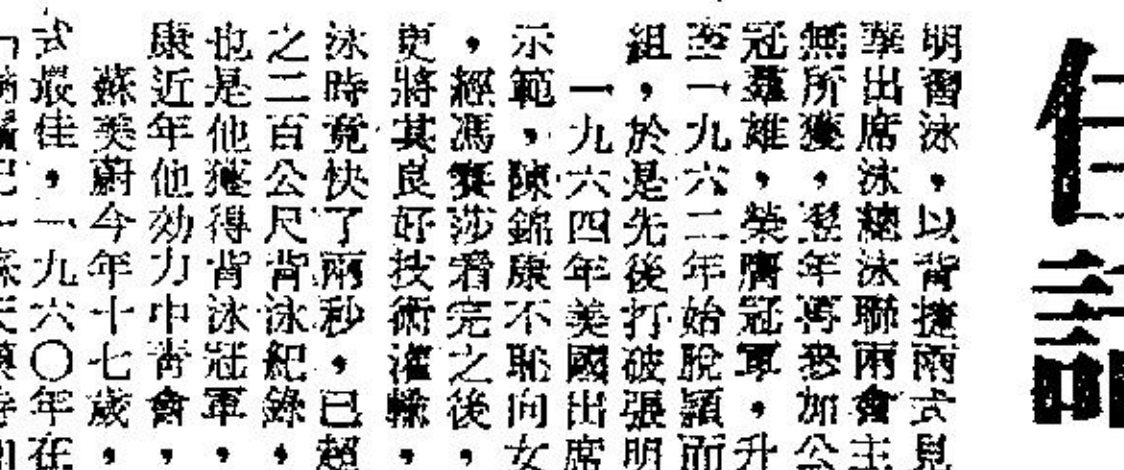 明習泳，以背捷兩式見
華出席泳總泳聯兩會主
無所獲，翌年再參加公
冠羣雄，榮膺冠軍，升
至一九六二年始脫穎而
組，於是先後打破張明
一九六四年美國出席
示範，陳錦康不恥向女
，經馮賽莎看完之後，
更將其良好技術灌輸，
泳時竟快了兩秒，已超
之二百公尺背泳紀錄，
也是他獲得背泳冠軍，
康近年他効力中青會，
蘇美蔚今年十七歲，
式最佳，一九六〇年在